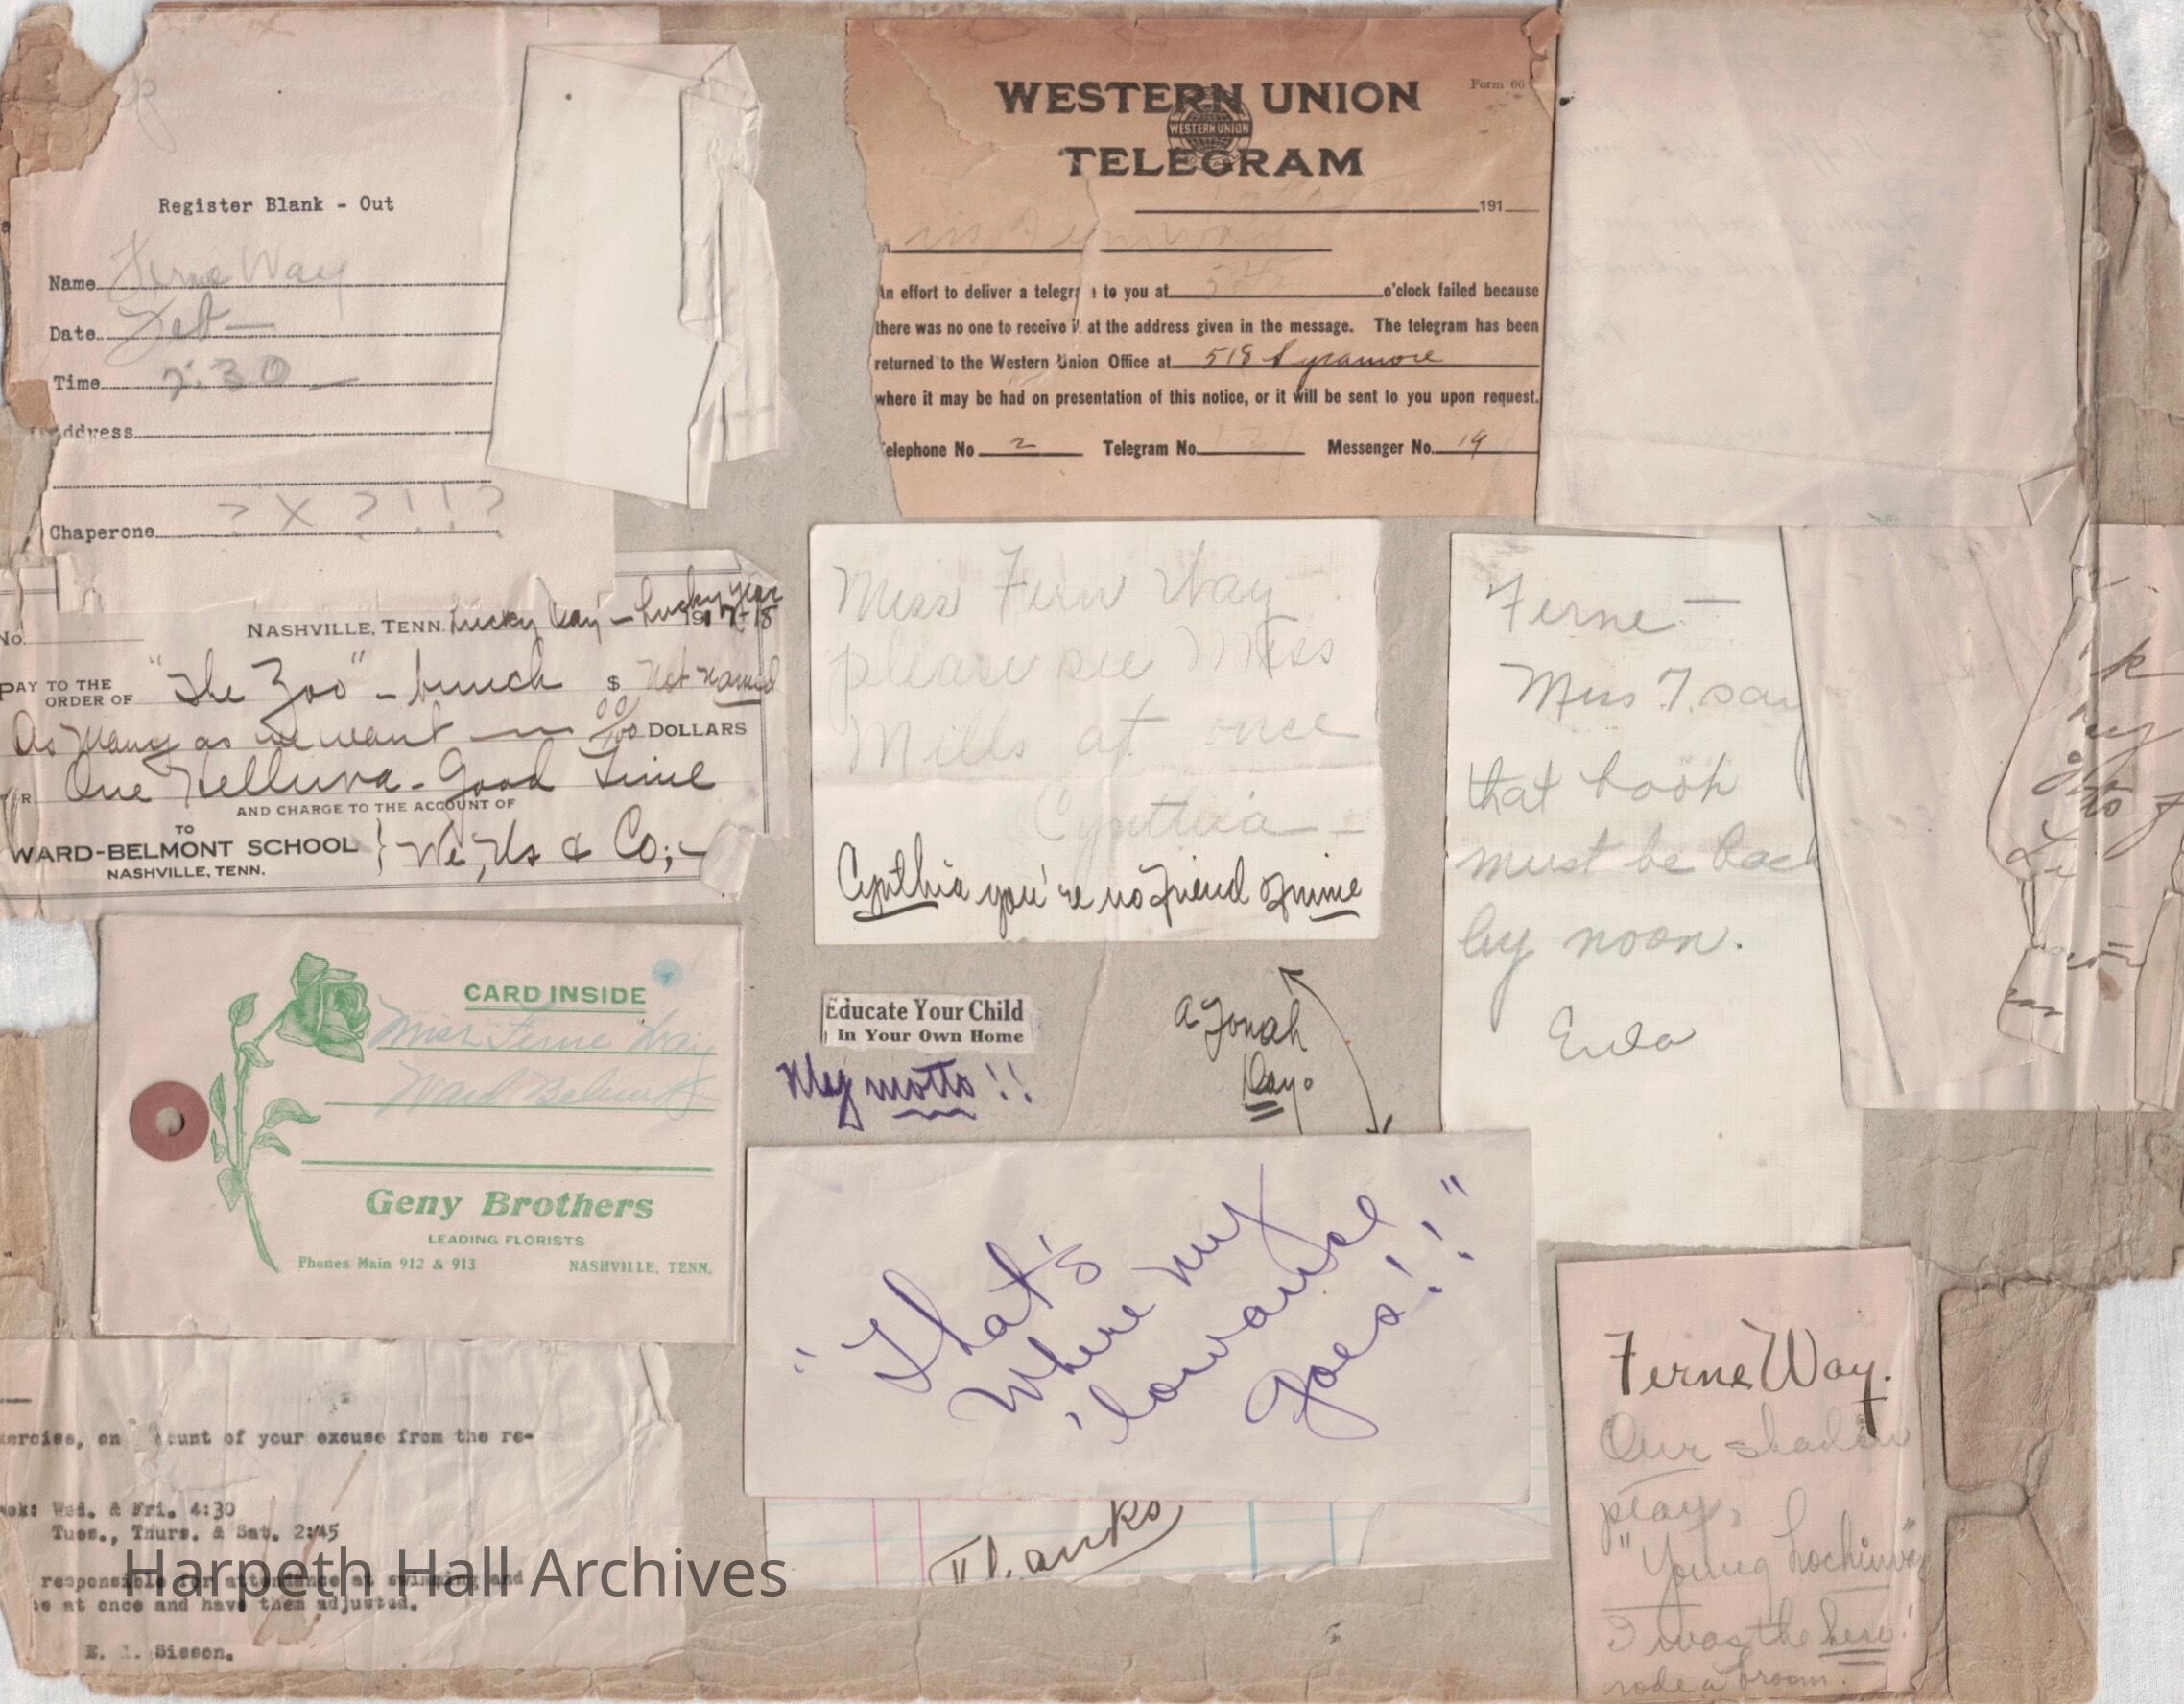 Register Blank - Out
Name Ferne Way
Date Feb-
Time 2:30-
ddress
Chaperone ? X ? ! ! ?
WESTERN UNION
WESTERN UNION
TELEGRAM
Form 66
191
An effort to deliver a telegra to you at 5 o'clock failed because
there was no one to receive it at the address given in the message. The telegram has been
returned to the Western Union Office at 518 Sycamore
where it may be had on presentation of this notice, or it will be sent to you upon request.
elephone No 2 Telegram No. Messenger No. 19
No.
NASHVILLE, TENN. Lucky Day - Lucky Year 1917-18
PAY TO THE ORDER OF "The Zoo" - bunch $ Not Named
As Many as we want 00/100 DOLLARS
One Helluva-Good Time
AND CHARGE TO THE ACCOUNT OF
TO
WARD-BELMONT SCHOOL } We, Us & Co;-
NASHVILLE, TENN.
Miss Fern Way
please see Miss
Mills at once
Cynthia -
Cynthia you're no friend o mine
Ferne -
Miss T. say
that book
must be back
by noon.
Eula
CARD INSIDE
Miss Ferne Way
Ward Belmont
Geny Brothers
LEADING FLORISTS
Phones Main 912 & 913 NASHVILLE, TENN.
Educate Your Child
In Your Own Home
My motto!!
A Jonah
Day.
"That's
where my
'lowance
goes!!"
Thanks
Ferne Way.
Our shadow
play,
"Young Lochinvar"
I was the hero!
rode a broom.
xercise, on unt of your excuse from the re-
eek: Wed. & Fri. 4:30
Tues., Thurs. & Sat. 2:45
responsible for attendance at swimming and
at once and have them adjusted.
E. Sisson.
Harpeth Hall Archives